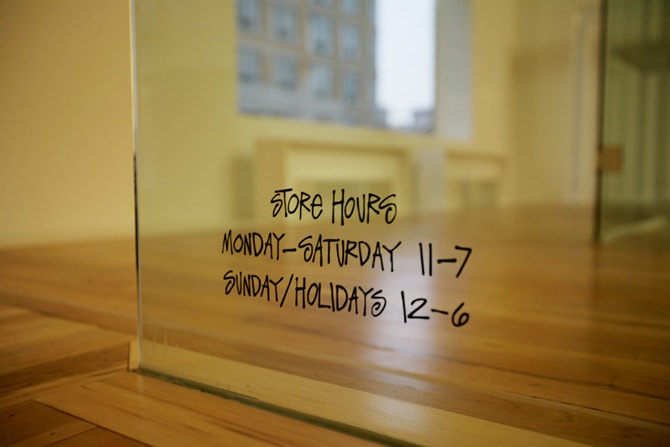 STORE HOURS
MONDAY-SATURDAY 11-7
SUNDAY/HOLIDAYS 12-6